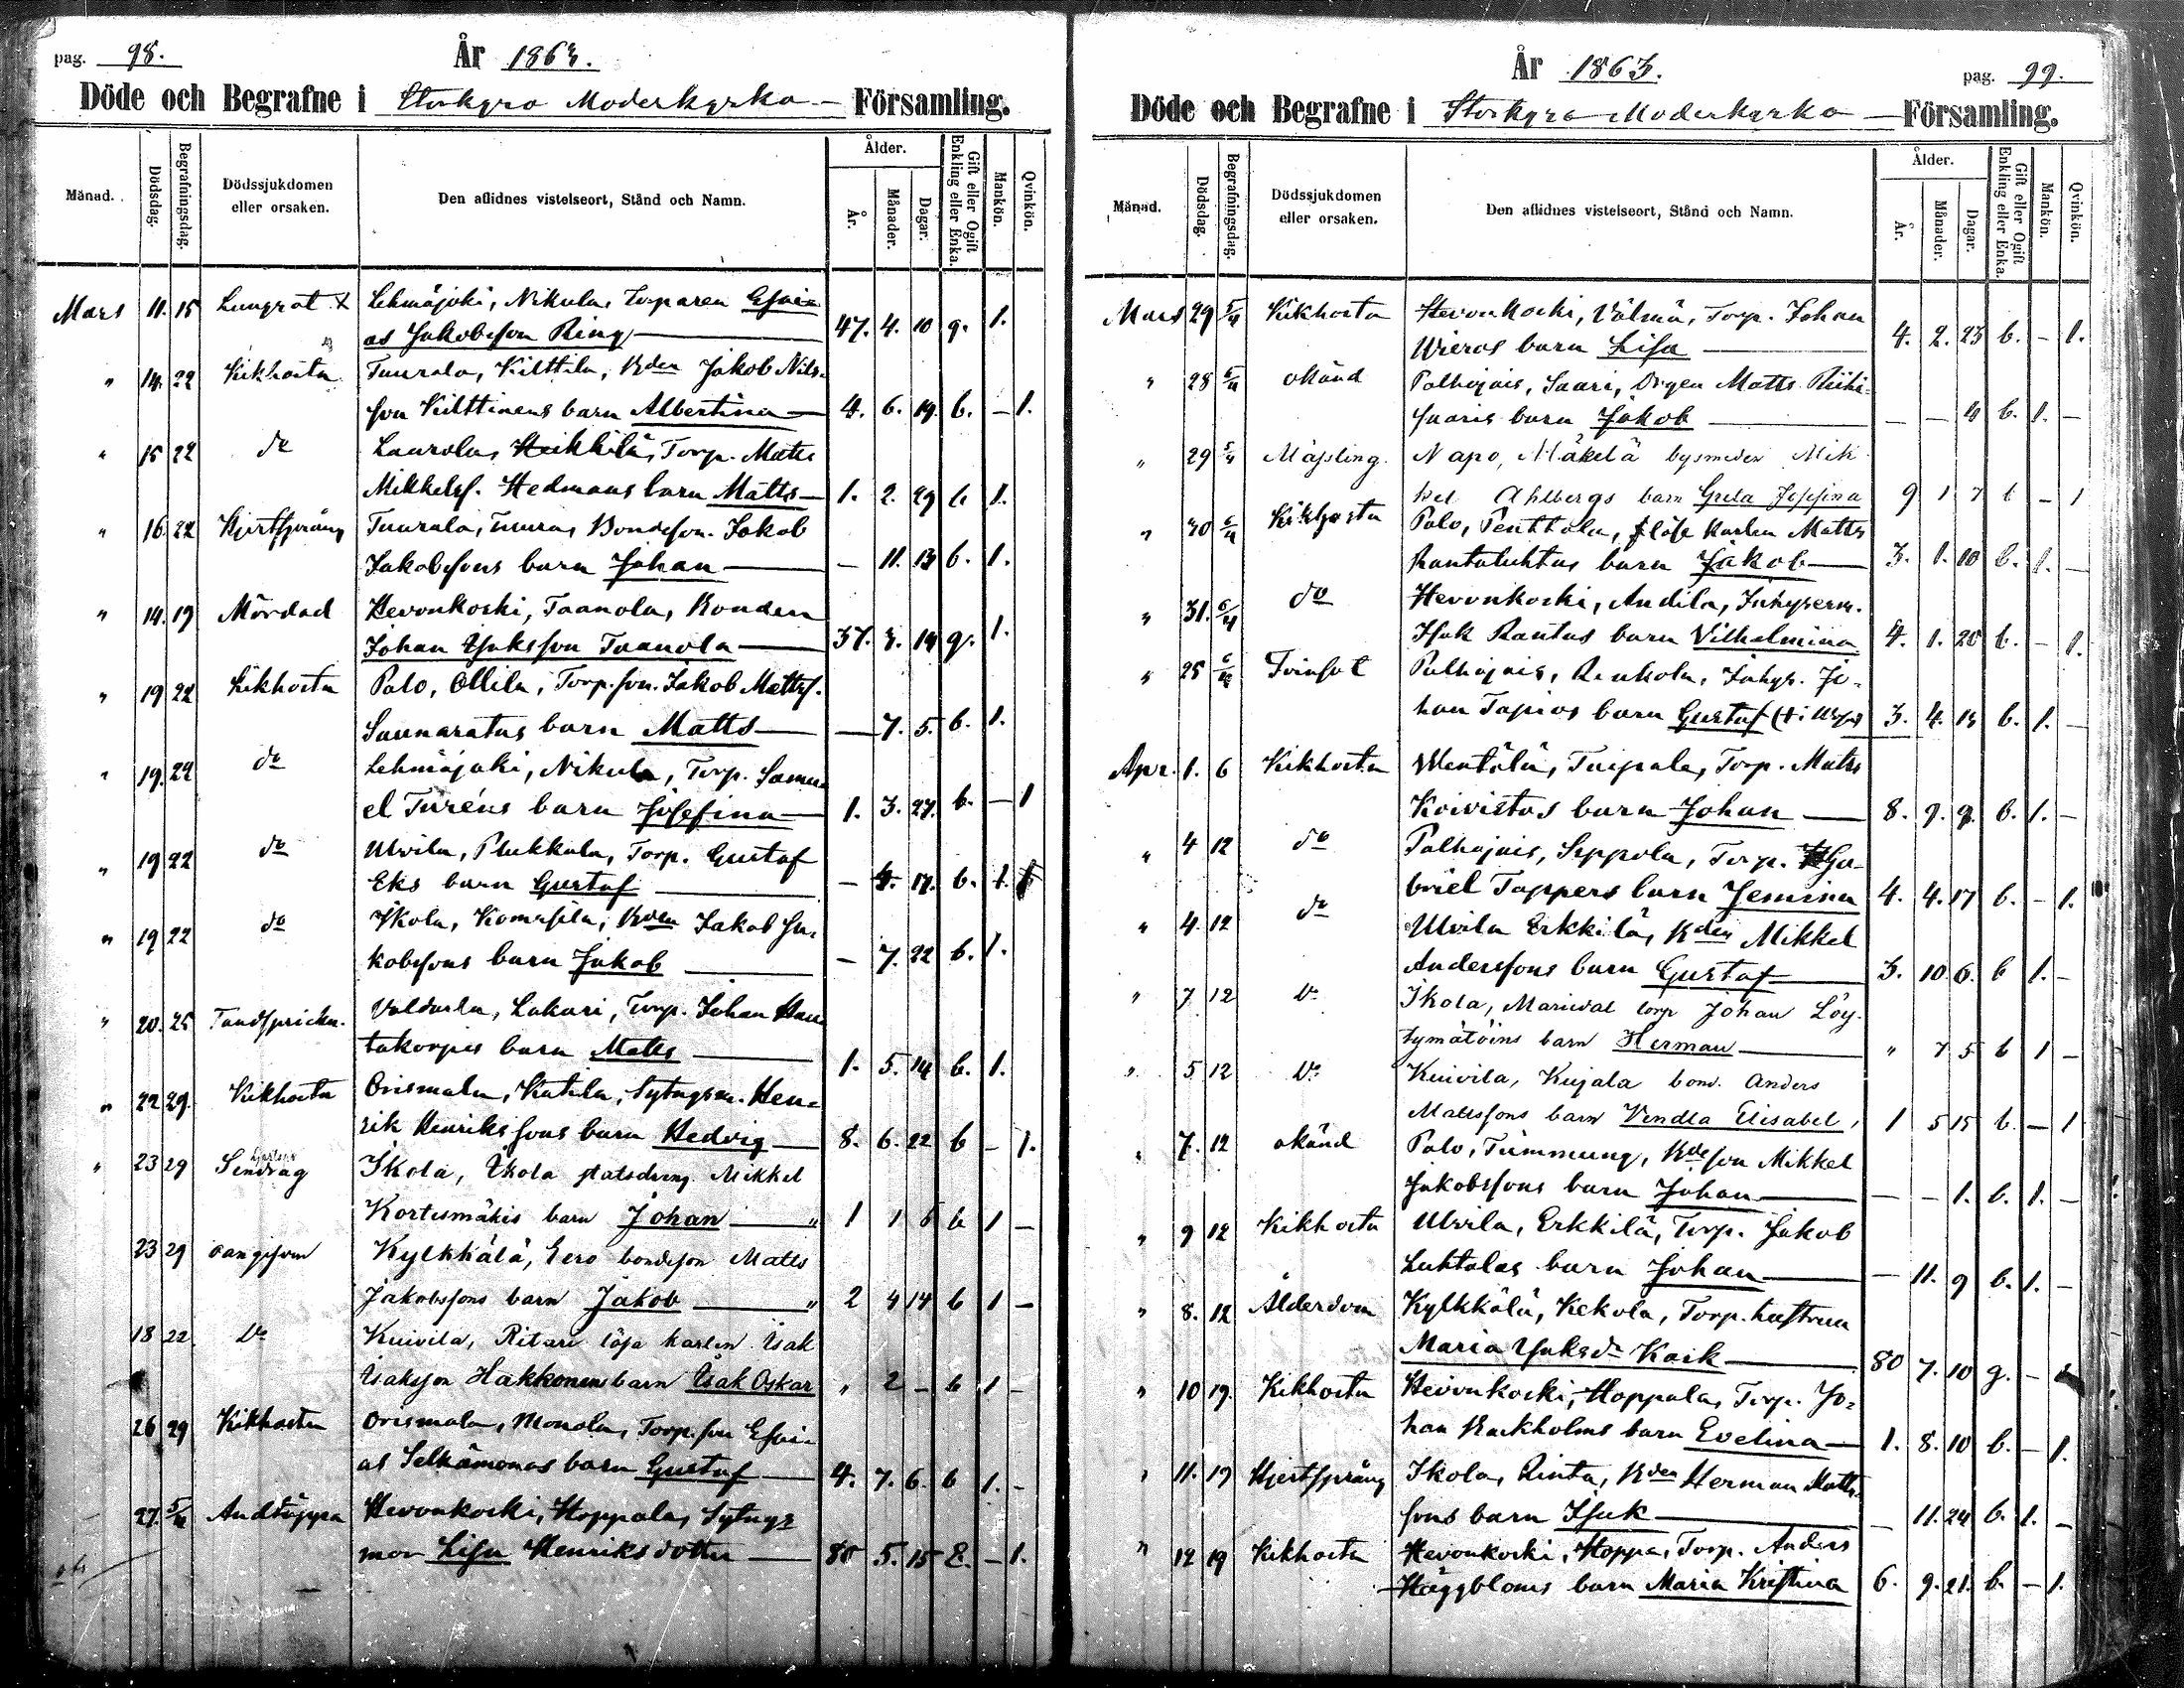 pag. 98.
År 1863.
Döde och Begrafne i Storkyro Moderkyrko - Församling.
Månad. Dödsdag. Begrafningsdag. Dödssjukdomen eller orsaken. Den aflidnes vistelseort, Stånd och Namn. Ålder. År. Månader. Dagar. Gift eller Ogift Enkling eller Enka. Mankön. Qvinkön.
Mars 11. 15 Lungrot Lehmäjoki, Nikula, Torparen Esai-
as Jakobsson Ring 47. 4. 10 g. 1.
" 14. 22 Kikhosta Tuurala, Kilttila, Bden Jakob Nils-
son Kilttinens barn Albertina 4. 6. 19. b. - 1.
" 15 22 do Laurola, Heikkilä, Torp. Matts
Mikkelss. Hedmans barn Matts 1. 2. 29 b 1.
" 16. 22 Hjertsprång Tuurala, Tuura, Bondeson. Jakob
Jakobssons barn Johan - 11. 13 b. 1.
" 14. 19 Mördad Hevonkoski, Taanola, Bonden
Johan Isaksson Taanola 37. 3. 14 g. 1.
" 19 22 Kikhosta Palo, Ollila, Torp. son. Jakob Mattss.
Saunaratas barn Matts - 7. 5. b. 1.
" 19. 22 do Lehmäjoki, Nikula, Torp. Samu-
el Turéns barn Josefina 1. 3. 27. b. - 1
" 19 22 do Ulvila, Pukkala, Torp. Gustaf
Eks barn Gustaf - 4. 17. b. 1.
" 19 22 do Ikola, Bden Jakob Ja-
kobssons barn Jakob - 7. 22 b. 1.
" 20. 25 Tandsprickn. Valdarla, Lakari, Torp. Johan Hau-
takorpis barn Matts 1. 5. 14 b. 1.
" 22 29. Kikhosta Orismala, Katila, Sytngsm. Hen-
rik Henrikssons barn Hedvig 8. 6. 22 b - 1.
" 23 29 Sendrag Ikola, Ikola statsdreng Mikkel
Kortesmäkis barn Johan " 1 1 6 b 1 -
23 29 oangifven Kylkkälä, Eero bondeson Matts
Jakobssons barn Jakob " 2 4 14 b 1 -
18 22 Do Kuivila, Ritari lösa karlen Isak
Isaksson Hakkonens barn Isak Oskar " 2 - b 1 -
26 29 Kikhosta Orismala, Monola, Torp. son Esai-
as Selkämonas barn Gustaf 4. 7. 6. b 1. -
27. 5/4 Andtäppa Hevonkoski, Hoppala, Sytngs
mor Lisa Henriksdotter 80 5. 15 E. - 1.
År 1863.
pag. 99.
Döde och Begrafne i Storkyro Moderkyrko - Församling.
Månad. Dödsdag. Begrafningsdag. Dödssjukdomen eller orsaken. Den aflidnes vistelseort, Stånd och Namn. Ålder. År. Månader. Dagar. Gift eller Ogift Enkling eller Enka. Mankön. Qvinkön.
Mars 29 5/4 Kikhosta Hevonkoski, Välmä, Torp. Johan
Wieros barn Lisa 4. 2. 23 b. - 1.
" 28 5/4 okänd Palhojais, Saari, Drgen Matts Riihi-
saaris barn Jakob - - 4 b. 1. -
" 29 5/4 Mässling. Napo, Mäkelä bysmeden Mik
kel Ahlbergs barn Greta Josefina 9 1 7 b - 1
" 30 6/4 Kikhosta Palo, Penttola, löse karlen Matts
Rantaluhtas barn Jakob 3. 1. 10 b. 1. -
" 31. 6/4 do Hevonkoski, Andila, Inhysesm.
Isak Rantas barn Vilhelmina 4. 1. 20 b. - 1.
" 25 6/4 Tvinsot Palhojais, Renkola, Inhys. Jo-
han Tapios barn Gustaf 3. 4. 13 b. 1. -
Apr. 1. 6 Kikhosta Wentälä, Tuipala, Torp. Matts
Koivistos barn Johan 8. 9. 9. b. 1. -
" 4 12 do Palhojais, Seppola, Torp. Ga-
briel Tappers barn Jemina 4. 4. 17 b. - 1.
" 4. 12 do Ulvila Erkkilä, Bden Mikkel
Anderssons barn Gustaf 3. 10. 6. b 1. -
" 7 12 Do Ikola, Marieval torp Johan Löy-
tymätöins barn Herman " 7 5 b 1 -
" 5 12 Do Kuivila, Kujala bond. Anders
Mattssons barn Vendla Elisabet, 1 5 15 b. - 1
" 7. 12 okänd Palo, Timmung, Bdeson Mikkel
Jakobssons barn Johan - - 1. b. 1. -
" 9 12 Kikhosta Ulvila, Erkkilä, Torp. Jakob
Luhtalas barn Johan - 11. 9 b. 1. -
" 8. 12 Ålderdom Kylkkälä, Kekola, Torp. hustrun
Maria Isaksdr Kask 80 7. 10 g. -
" 10 19. Kikhosta Hevonkoski, Hoppala, Torp. Jo-
han Backholms barn Evelina 1. 8. 10 b. - 1.
" 11. 19 Hjertsprång Ikola, Rinta, Bden Herman Matts-
sons barn Isak - 11. 24 b. 1. -
" 12 19 Kikhosta Hevonkoski, Hoppa, Torp. Anders
Häggbloms barn Maria Kristina 6. 9. 21. b. - 1.